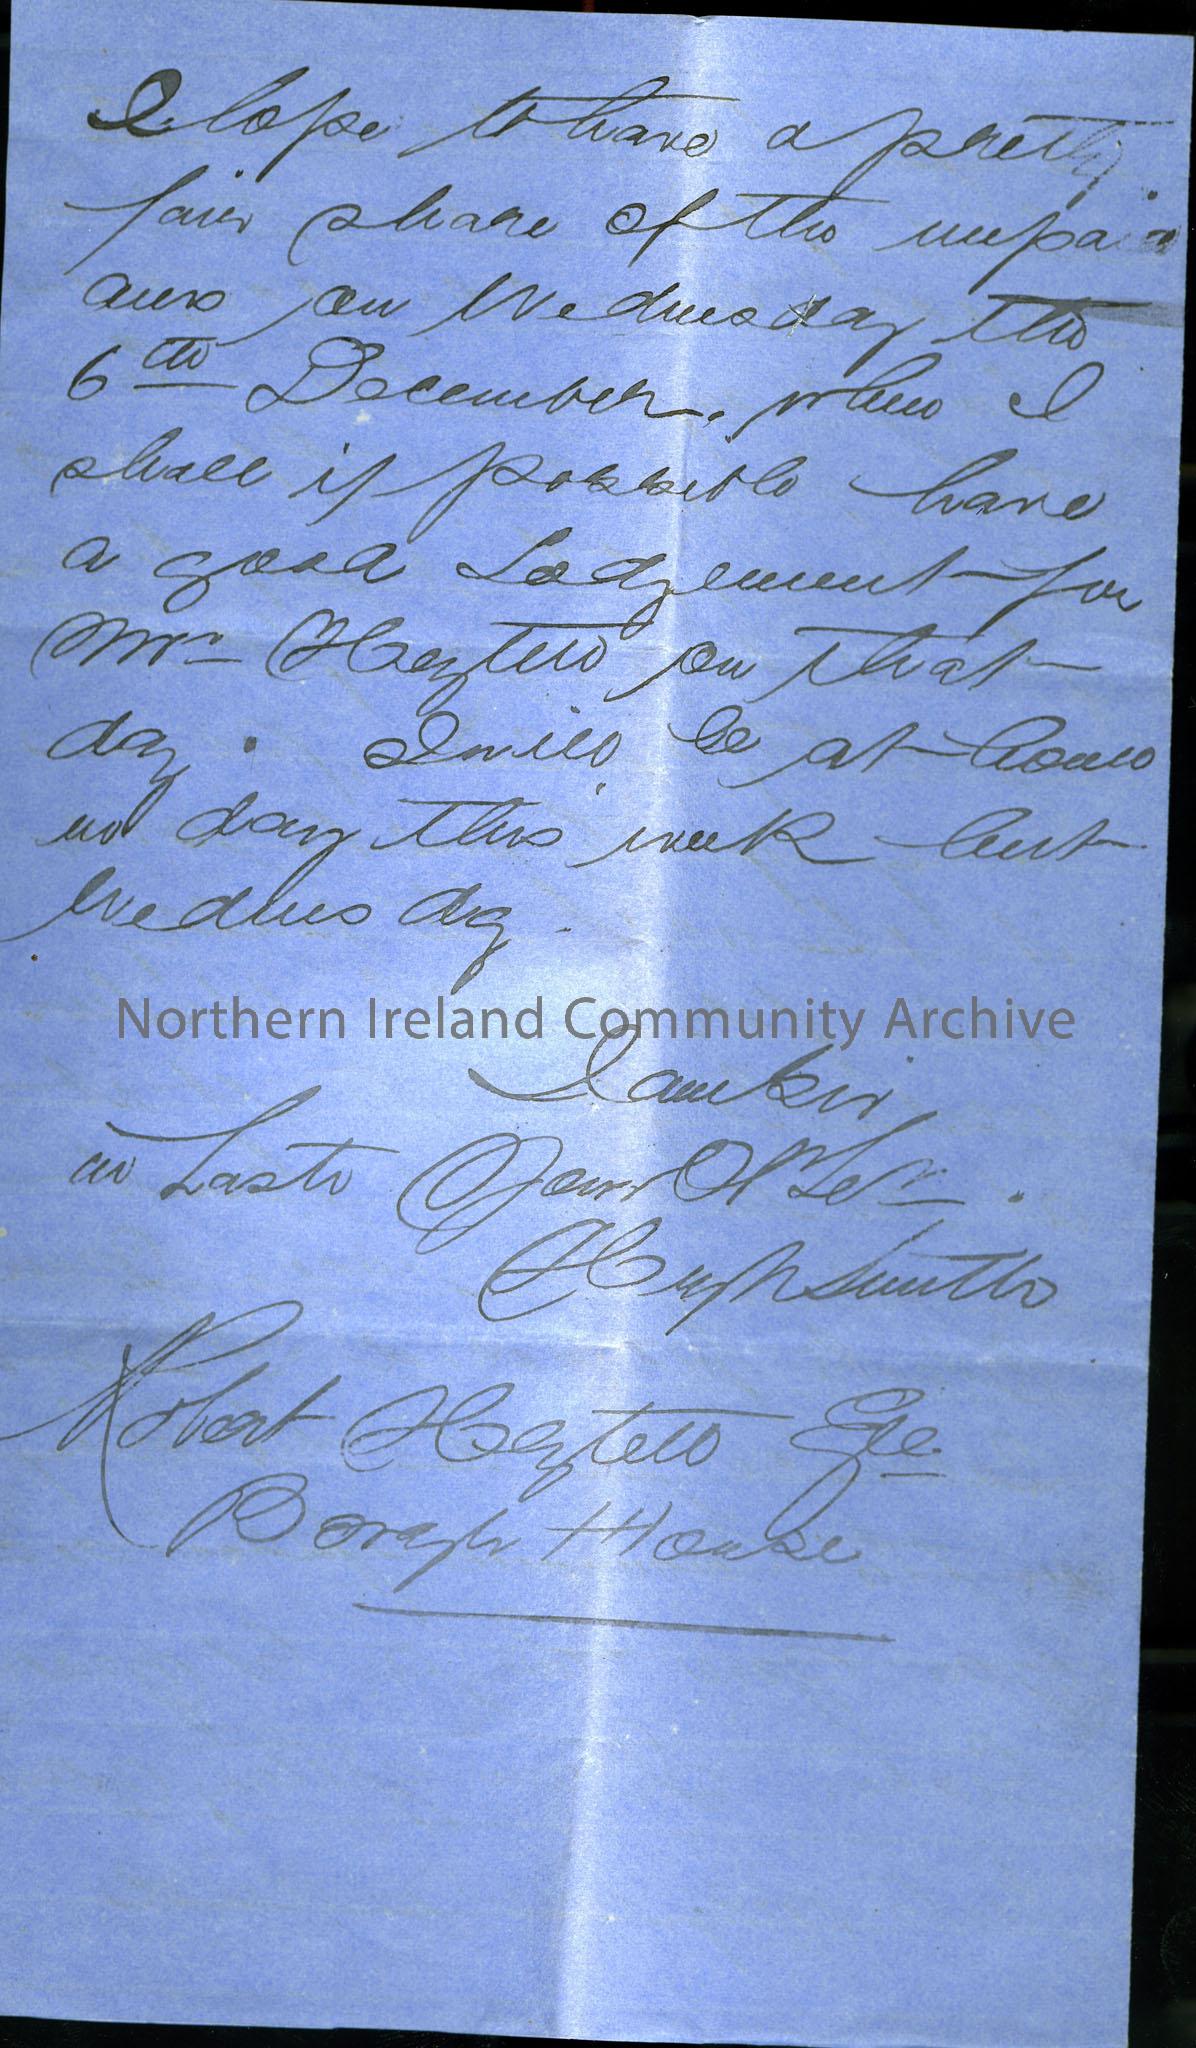 I hope to have a pretty
fair share of the unpaid
ans on Wednesday the
6th December. when I
shall if possible have
a good Lodgement for
Mr Hezlett on that
day. I will be at home
no day this week but
Wednesday.
Northern Ireland Community Archive
I am Sir,
as Last Your Ob
Hugh Smith
Robert Hezlett Esq
Bovagh House